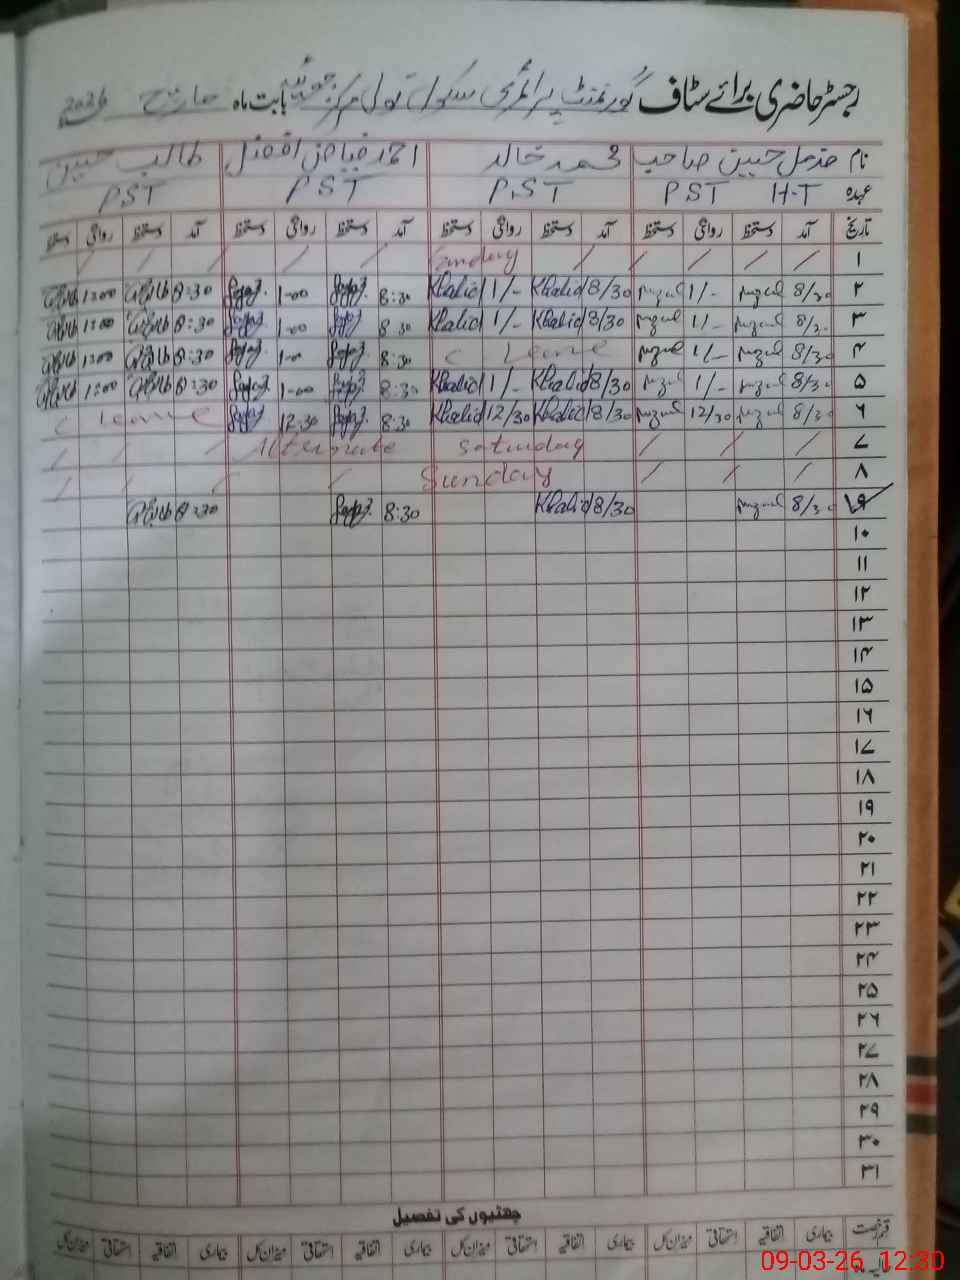 رجسٹر حاضری برائے سٹاف گورنمنٹ پرائمری سکول تولی مرکز بابت ماہ مارچ 2026
نام مزمل حسین صاحب محمد خالد احمد فیاض افضل طالب حسین
عہدہ PST H-T PST PST PST
تاریخ آمد دستخط روانگی دستخط آمد دستخط روانگی دستخط آمد دستخط روانگی دستخط آمد دستخط روانگی دستخط
۱ / / / / Sunday / / / / / /
۲ 8/30 1/- 8/30 Khalid 1/- Khalid 8:30 1-00 8:30 1:00
۳ 8/30 1/- 8/30 Khalid 1/- Khalid 8:30 1-00 8:30 1:00
۴ 8/30 1/- C Leave 8:30 1-00 8:30 1:00
۵ 8/30 1/- 8/30 Khalid 1/- Khalid 8:30 1-00 8:30 1:00
۶ 8/30 12/30 8/30 Khalid 12/30 Khalid 8:30 12:30 C Leave
۷ / / / / Alternate Saturday / / /
۸ / / / Sunday / / / /
۹ 8/30 8/30 Khalid 8:30 8:30
۱۰
۱۱
۱۲
۱۳
۱۴
۱۵
۱۶
۱۷
۱۸
۱۹
۲۰
۲۱
۲۲
۲۳
۲۴
۲۵
۲۶
۲۷
۲۸
۲۹
۳۰
۳۱
چھٹیوں کی تفصیل
قسم رخصت بیماری اتفاقیہ استحقاقی میزان کل بیماری اتفاقیہ استحقاقی میزان کل بیماری اتفاقیہ استحقاقی میزان کل بیماری اتفاقیہ استحقاقی میزان کل
حالیہ ماہ
09-03-26 12:30